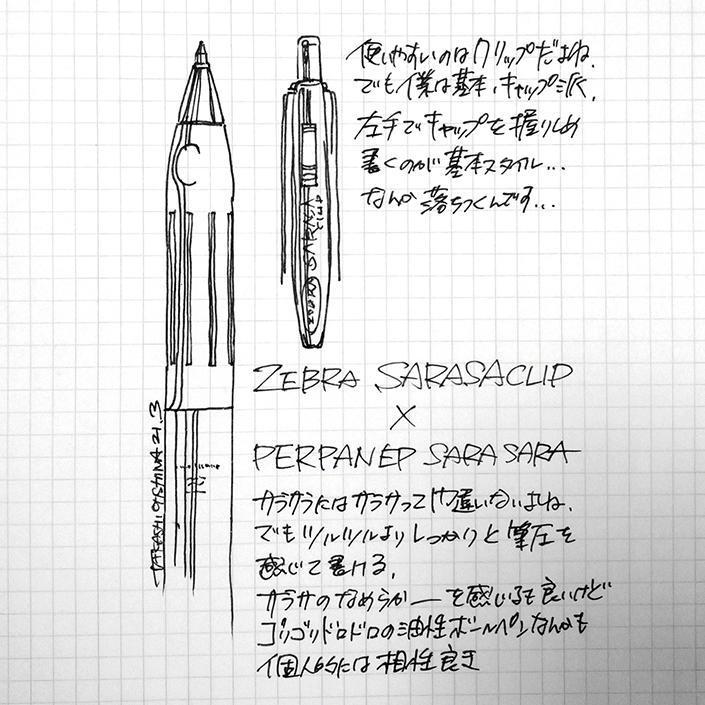 使いやすいのはクリップだよね。
でも僕は基本、キャップ派。
左手でキャップを握りしめ
書くのが基本スタイル...
なんか落ちつくんです...
ZEBRA SARASACLIP
×
PERPANEP SARA SARA
サラサラにはサラサって間違いないよね。
でもツルツルよりしっかりと筆圧を
感じて書ける。
サラサのなめらかーを感じるも良いけど
ゴリゴリドロドロの油性ボールペンなんかも
個人的には相性良き
TAKASHI OTSHINA 21.3